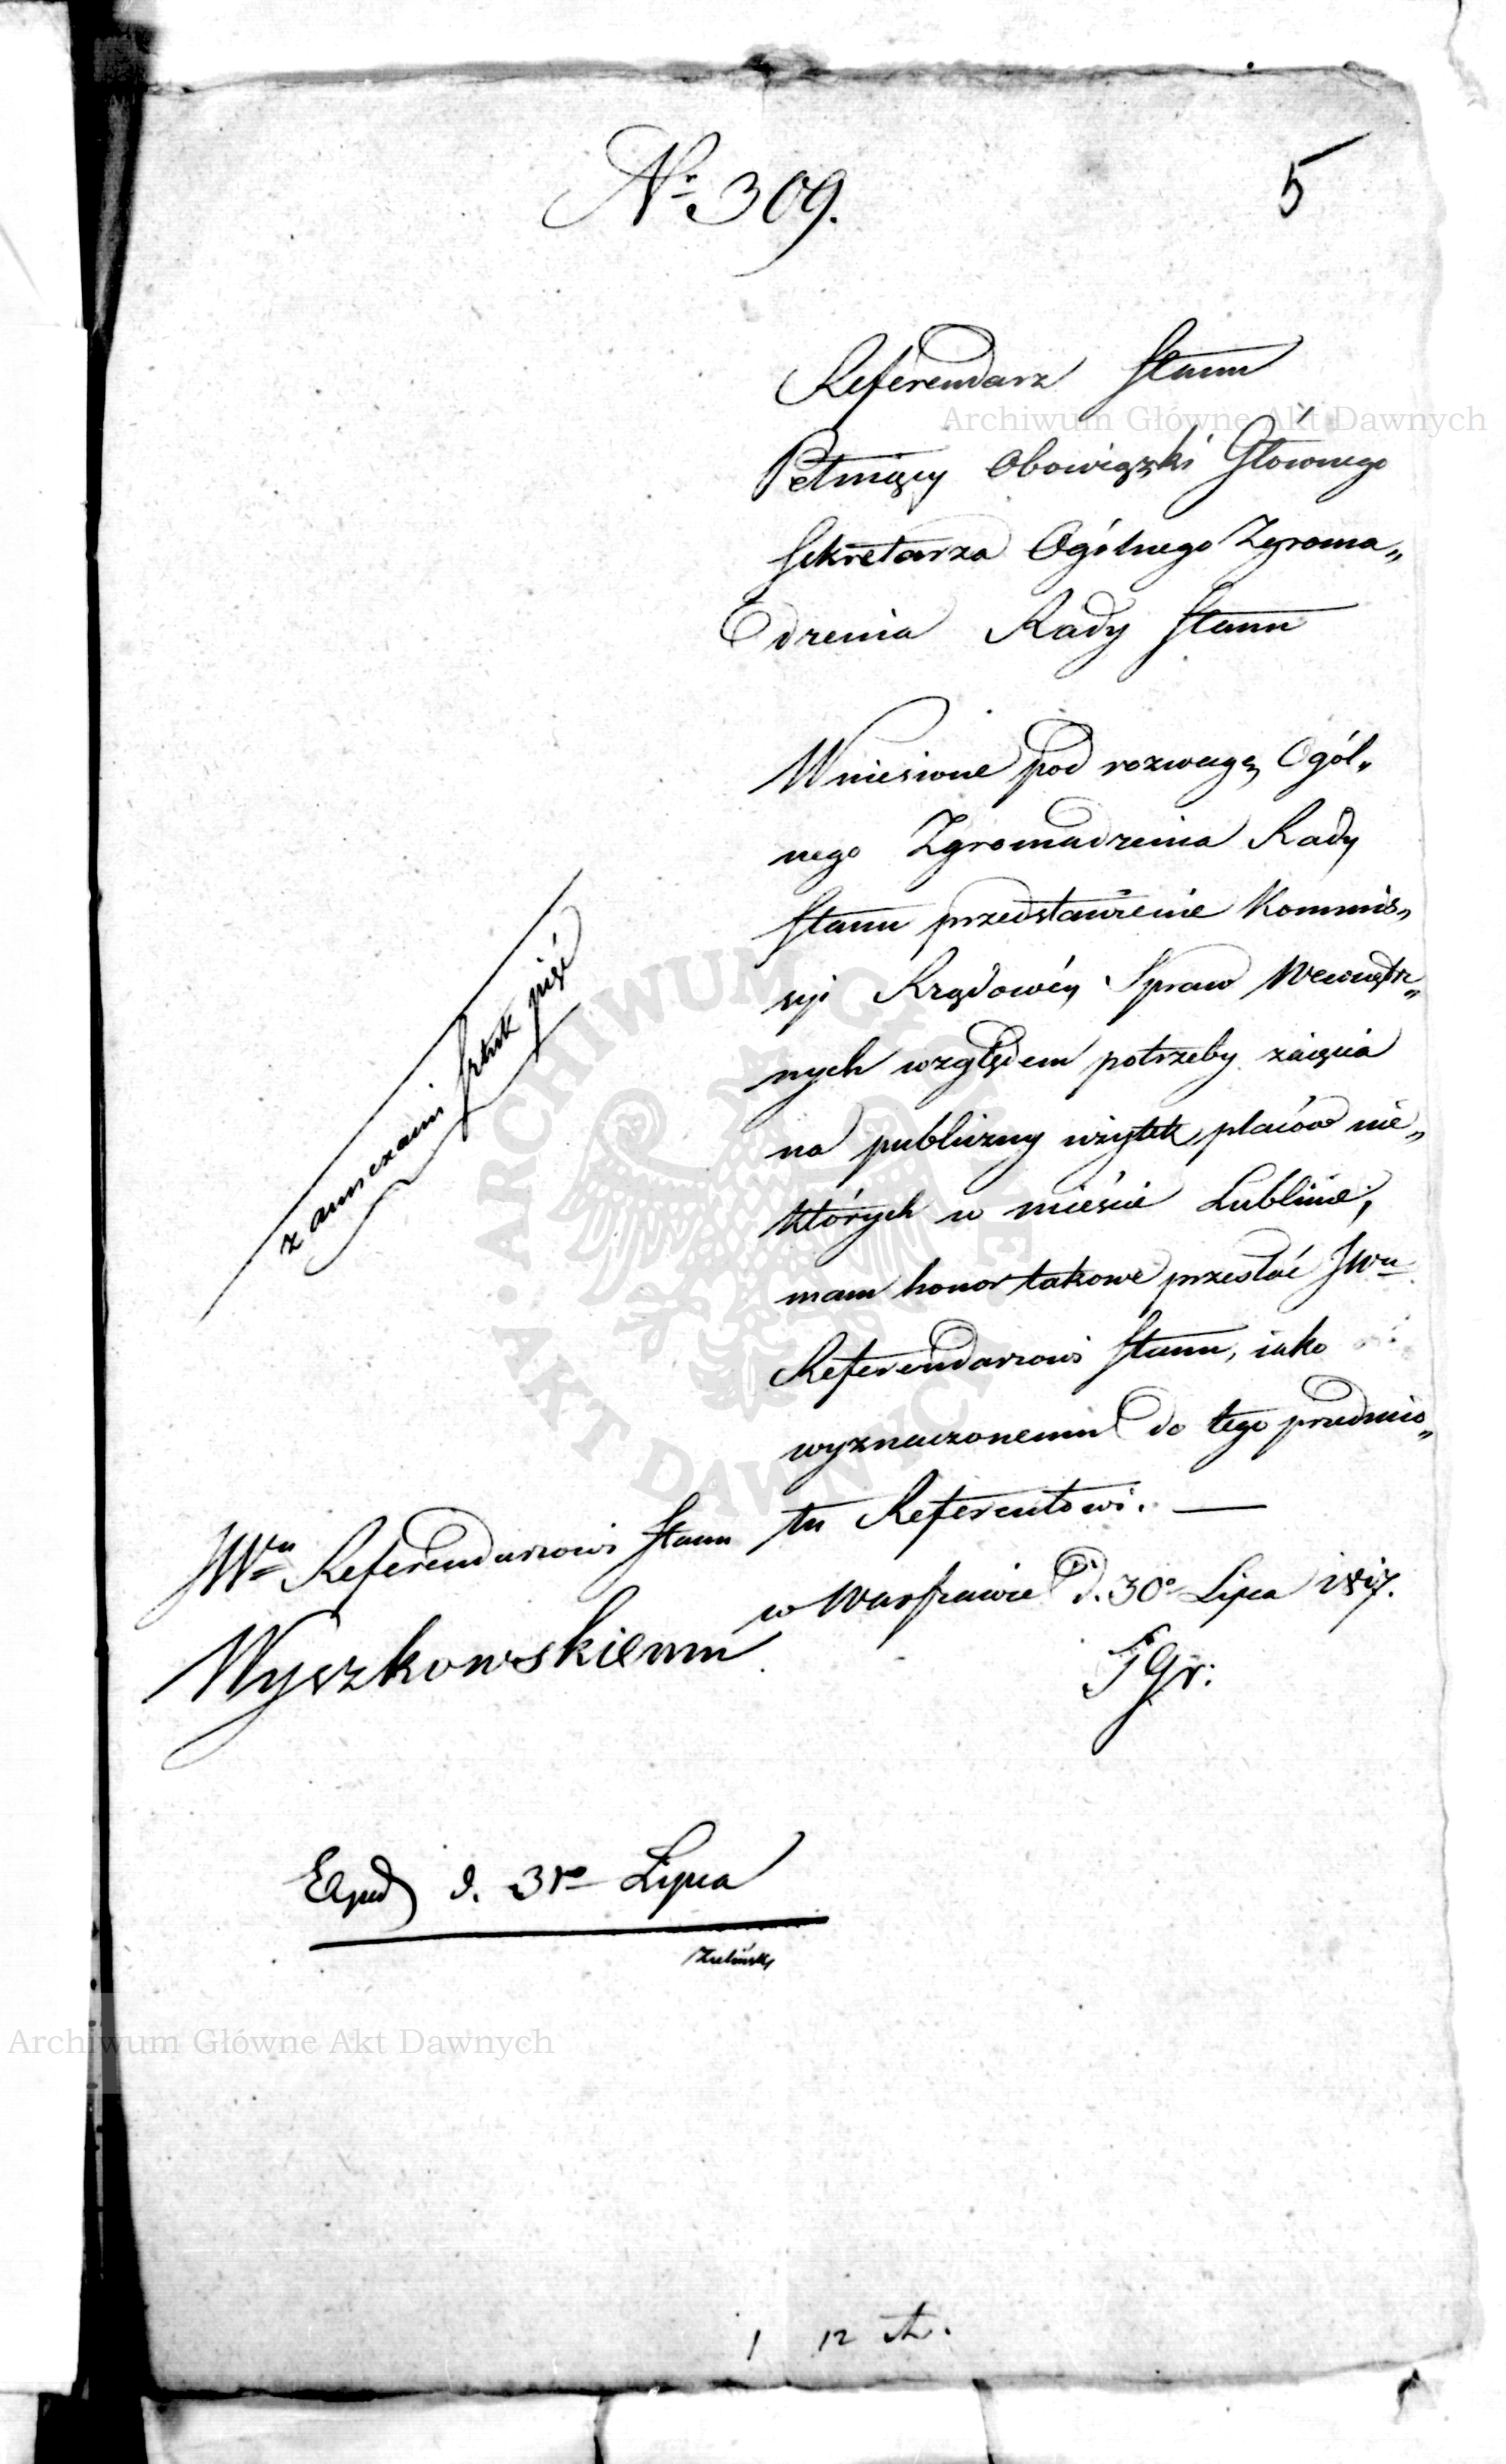 No 309.
5
Referendarz Stanu
Pełniący Obowiązki Głównego
Sekretarza Ogólnego Zgroma„
dzenia Rady Stanu
Wniesione pod rozwagę Ogól„
nego Zgromadzenia Rady
Stanu przedstawienie Kommis„
syi Rządowéy Spraw Wewnętrz„
nych względem potrzeby zaięcia
na publiczny użytek placów nie„
których w mieście Lublinie,
mam honor takowe przesłać JWu
Referendarzowi Stanu, iako
wyznaczonemu do tego przedmio„
tu Referentowi. —
w Warszawie d. 30o Lipca 1817.
z annexami sztuk pięć
JWu Referendarzowi Stanu
Wyszkowskiemu
Exped d. 31o Lipca
1 12
Archiwum Główne Akt Dawnych
ARCHIWUM GŁÓWNE
AKT DAWNYCH
Archiwum Główne Akt Dawnych